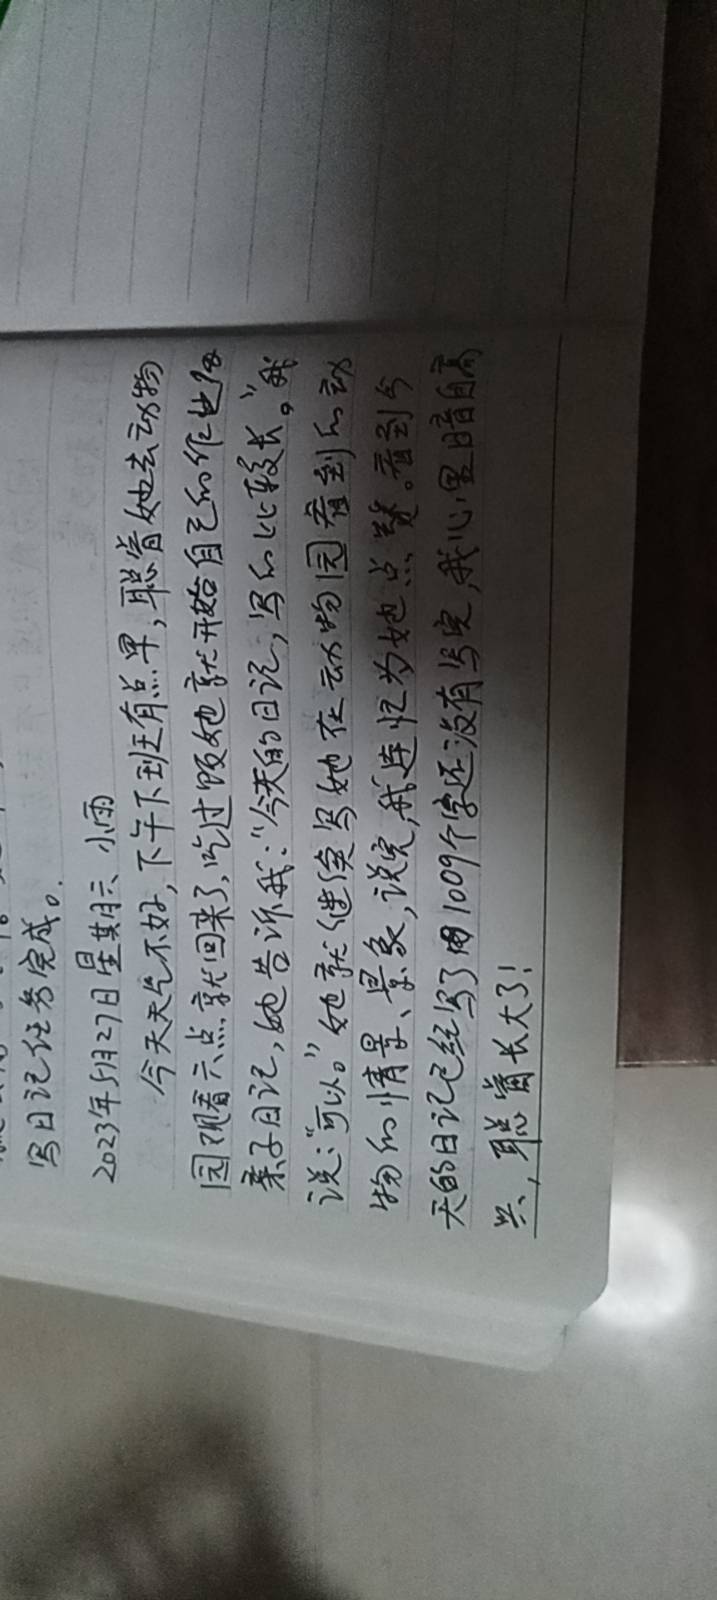 写日记任务完成。
2023年5月27日星期六 小雨
今天天气不好,下午下班有点早,聪睿她去动物
园观看六点就回来了,吃过饭她就开始自己的作业
亲子日记,她告诉我:“今天的日记,写的比较长。”我
说:“可以。”她就继续写她在动物园看到的动
物的情景、景象,说完,我连忙为她点赞。看到今
天的日记已经写了用1009个字还没有写完,我心里暗自高
兴,聪睿长大了!